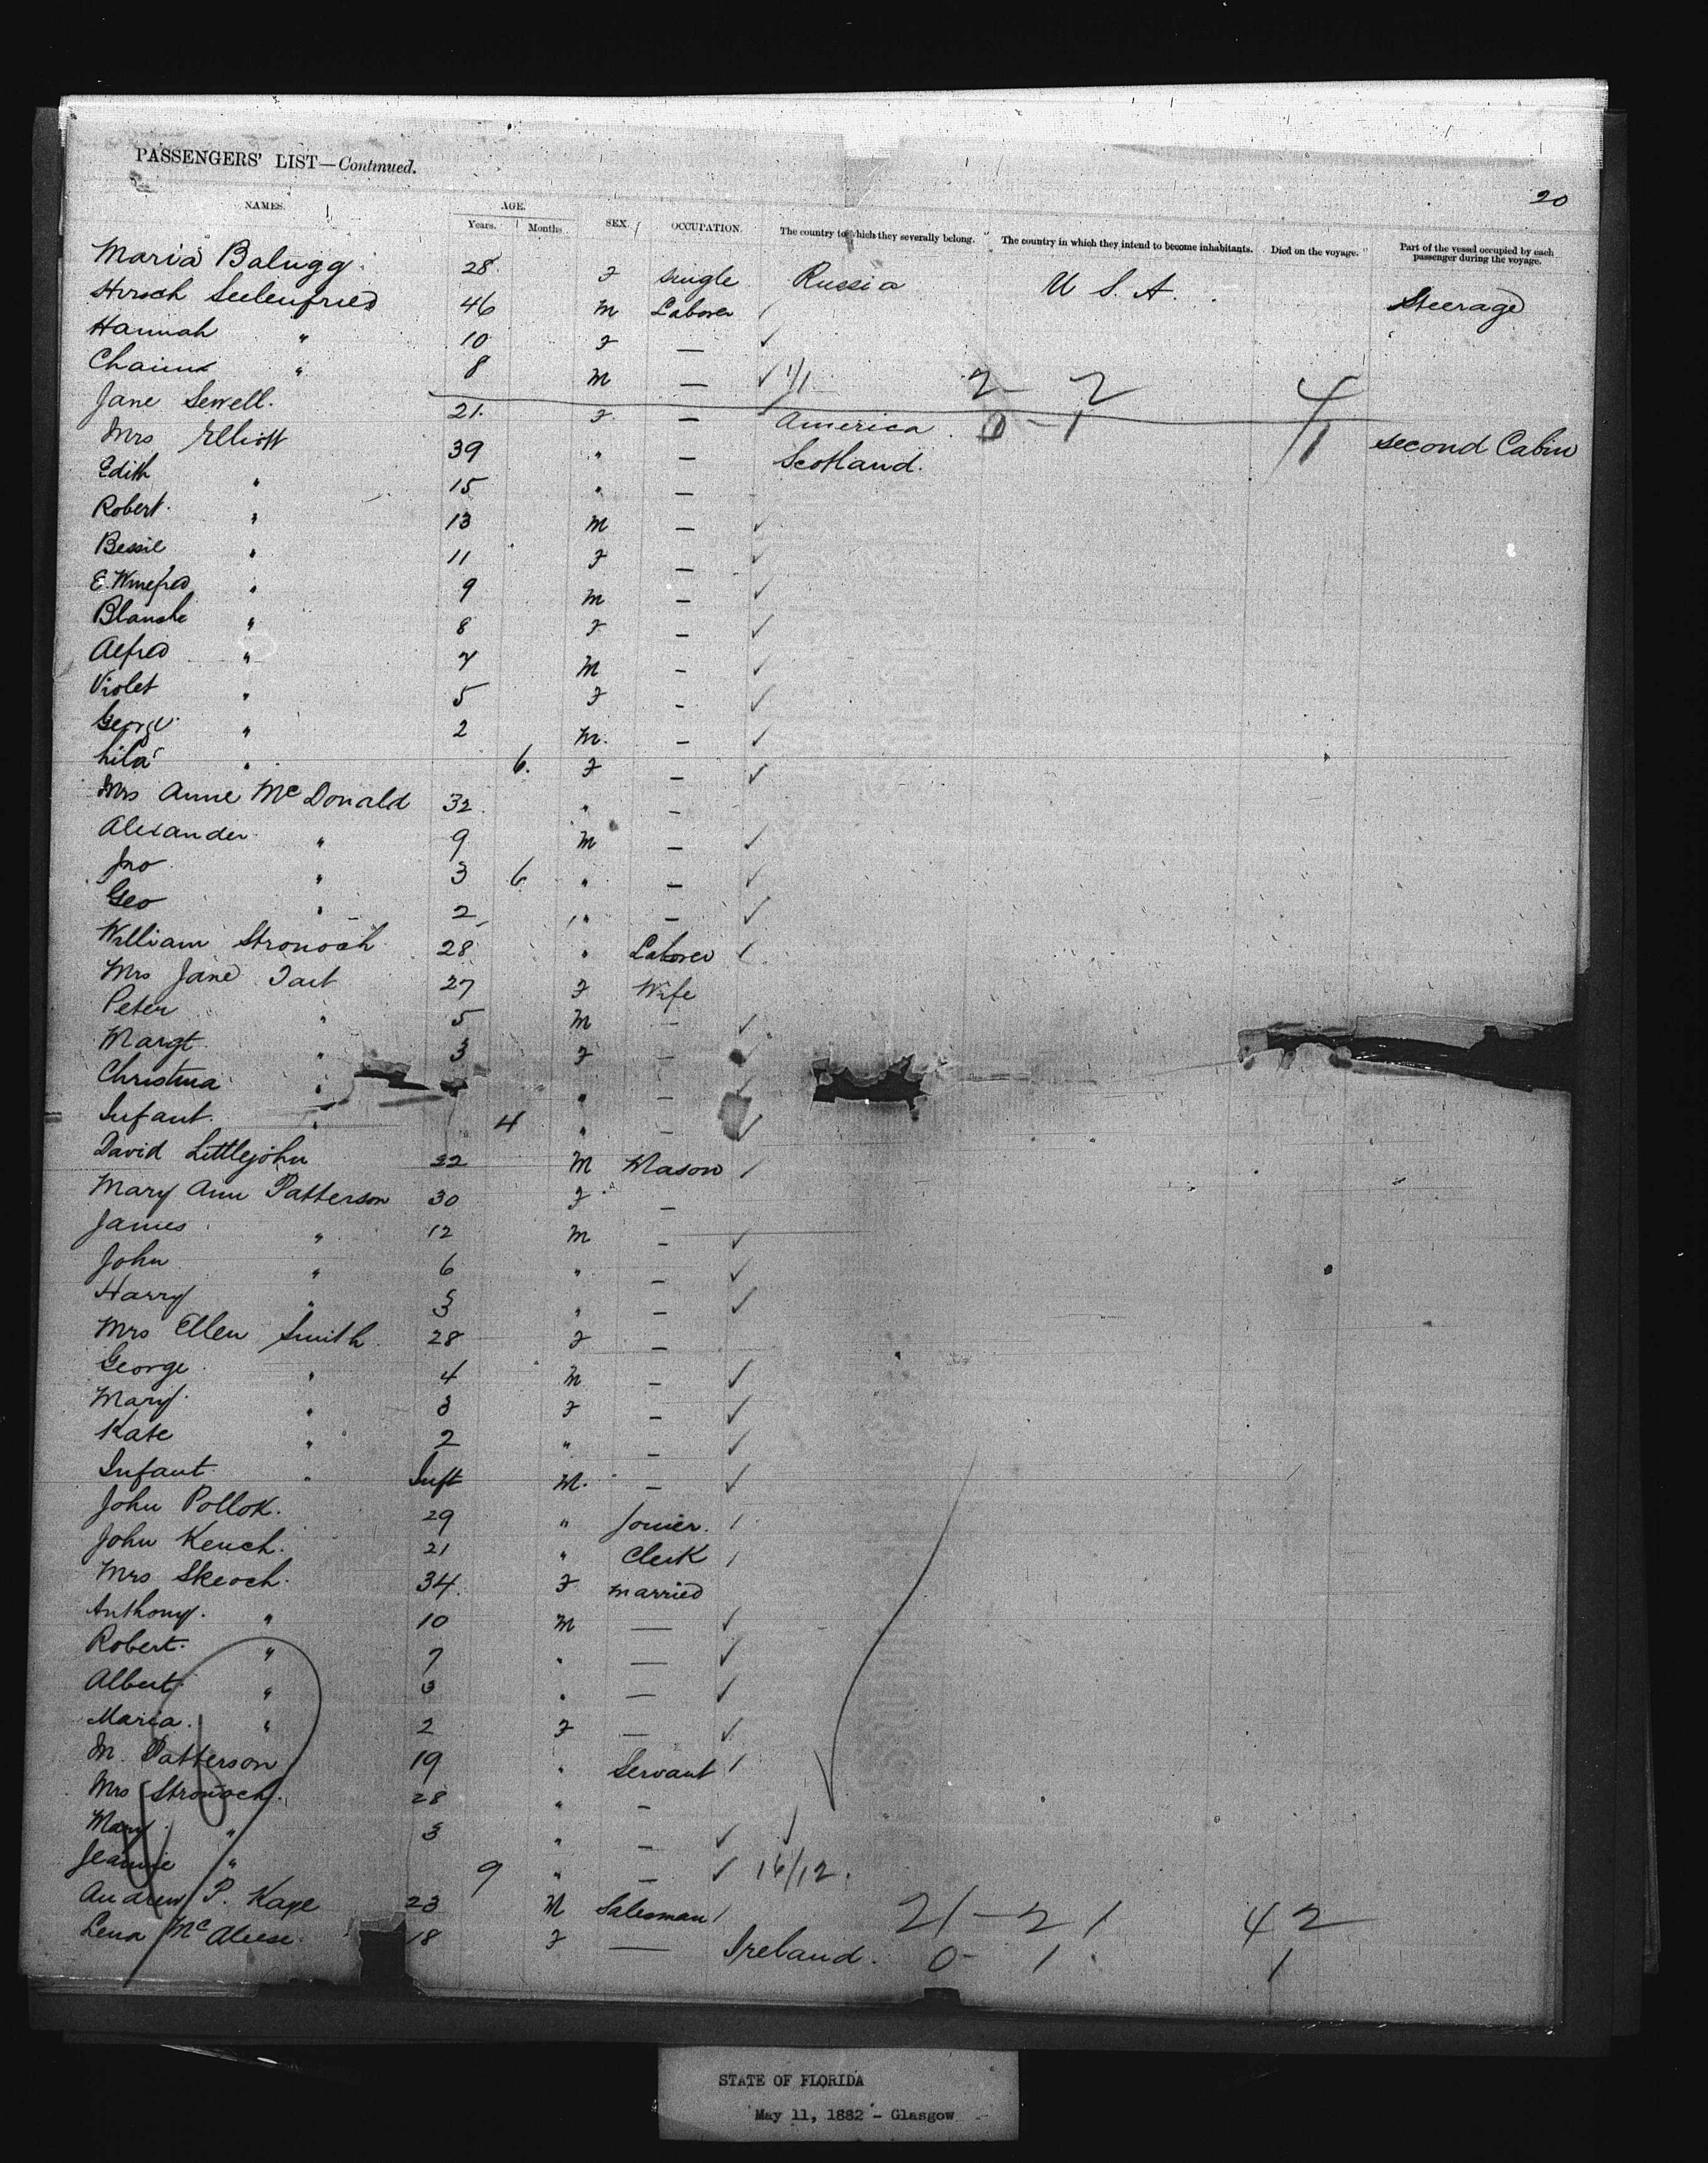 PASSENGERS' LIST—Continued.
20
NAMES. AGE. Years. Months SEX. OCCUPATION. The country to which they severally belong. The country in which they intend to become inhabitants. Died on the voyage. Part of the vessel occupied by each passenger during the voyage.
Maria Balugg 28 F single Russia U S. A. Steerage
Hirsch Seelenfried 46 M Laborer /
Hannah " 10 F — ✓
Chaim " 8 M — ✓ 1/1 2 - 2 4
Jane Sewell. 21. F — America 0 - 1 1 second Cabin
Mrs Elliott 39 " — Scotland.
Edith " 15 " —
Robert " 13 M — ✓
Bessie " 11 F — ✓
E. Winefred " 9 M — ✓
Blanche " 8 F — ✓
Alfred " 7 M — ✓
Violet " 5 F — ✓
George " 2 M. — ✓
Lila " 6. F — ✓
Mrs Anne McDonald 32 " —
Alexander " 9 M — ✓
Jno " 3 6 " — ✓
Geo " 2 " — ✓
William Stronoch 28 " Laborer /
Mrs Jane Tait 27 F Wife
Peter " 5 M — ✓
Margt " 3 F — ✓
Christina " " — ✓
Infant " 4 " — ✓
David Littlejohn 22 M Mason /
Mary Ann Patterson 30 F —
James " 12 M — ✓
John " 6 " — ✓
Harry " 3 " — ✓
Mrs Ellen Smith 28 F —
George " 4 M — ✓
Mary " 3 F — ✓
Kate " 2 " — ✓
Infant " Inft M. — ✓
John Pollok. 29 " Joiner. /
John Keuch. 21 " Clerk /
Mrs Skeoch. 34. F married
Anthony. " 10 M — ✓
Robert. " 7 " — ✓
Albert " 3 " — ✓
Maria. " 2 F — ✓
M. Patterson 19 " Servant /
Mrs Stronoch. 28 " —
Mary " 3 " — ✓
Jeanie " 9 " — ✓ 16/12.
Andrew P. Kaye 23 M Salesman / 21 - 21 42
Lena McAleese. 18 F — Ireland. 0 - 1 1
STATE OF FLORIDA
May 11, 1882 - Glasgow